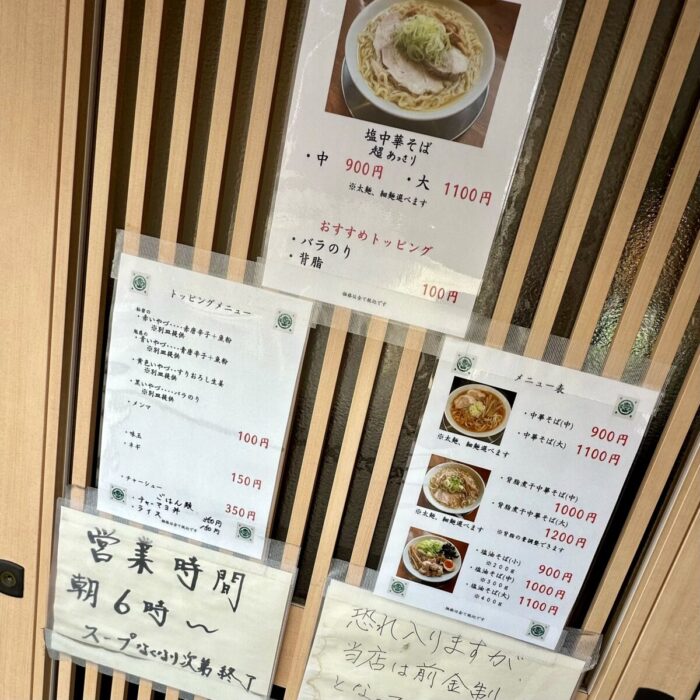 塩中華そば
超あっさり
・中 900円 ・大 1100円
※太麺、細麺選べます
おすすめトッピング
・バラのり
・背脂
100円
価格は全て税込です
トッピングメニュー
・赤いやづ‥‥赤唐辛子＋魚粉
※別皿提供
・青いやづ‥‥青唐辛子＋魚粉
※別皿提供
・黄色いやづ‥‥すりおろし生姜
※別皿提供
・黒いやづ‥‥バラのり
※別皿提供
・メンマ
100円
・味玉
・ネギ
150円
・チャーシュー
350円
ごはん類
・チャーマヨ丼
・ライス
価格は全て税込です
メニュー表
・中華そば(中)
900円
・中華そば(大)
1100円
※太麺、細麺選べます
・背脂煮干中華そば(中)
1000円
・背脂煮干中華そば(大)
1200円
※太麺、細麺選べます
※背脂の量調整できます
・塩油そば(小)
900円
※200g
・塩油そば(中)
1000円
※300g
・塩油そば(大)
1100円
※400g
価格は全て税込です
営業時間
朝6時〜
スープなくなり次第終了
恐れ入りますが、
当店は前金制
となって